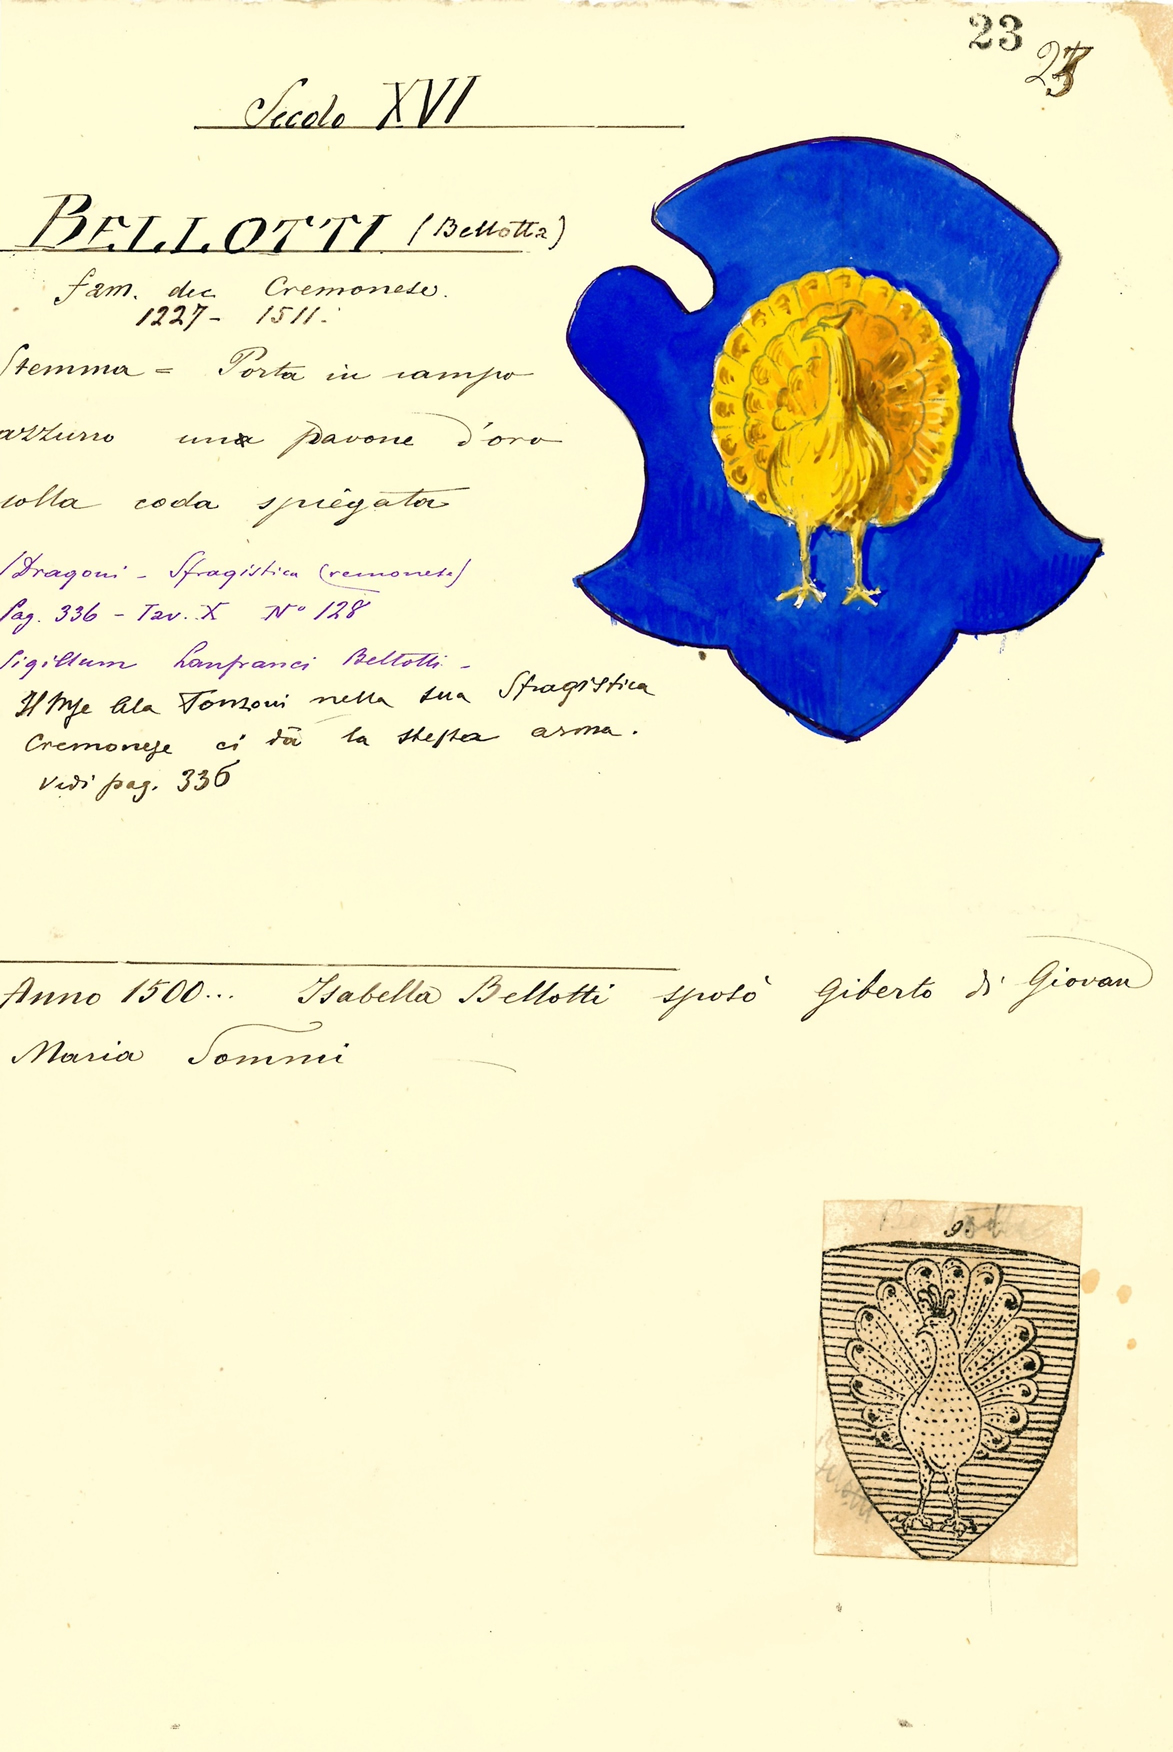 23
23
Secolo XVI
BELLOTTI (Bellotta)
fam. dec Cremonese.
1227 - 1511.
Stemma = Porta in campo
azzurro una pavone d'oro
colla coda spiegata
(Dragoni - Sfragistica Cremonese)
Pag. 336 - Tav. X Nº 128
Sigillum Lanfranci Bellotti -
Il Mse Ala Ponzoni nella sua Sfragistica
Cremonese ci dà la stessa arma.
Vedi pag. 336
Anno 1500... Isabella Bellotti sposò Giberto di Giovan
Maria Sommi
95